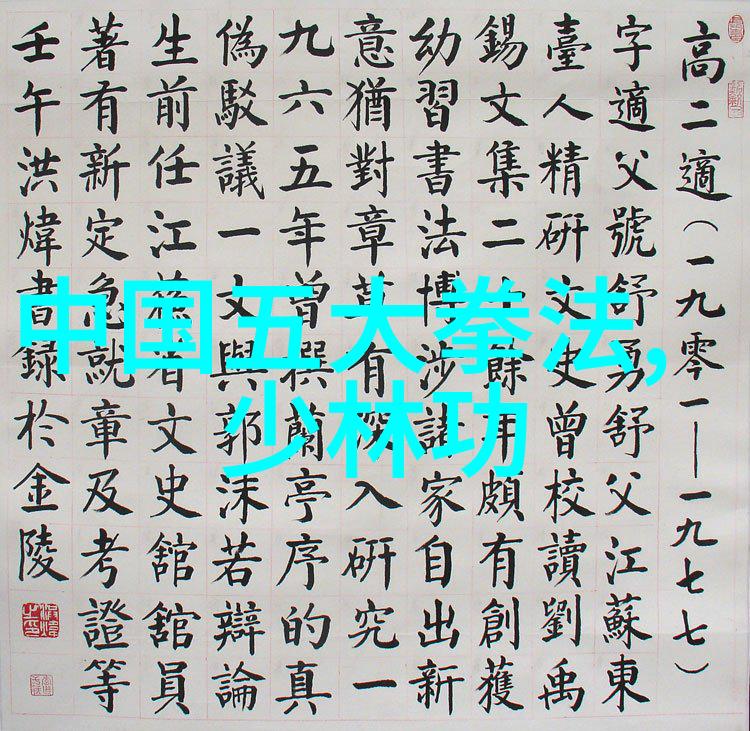 高二適(一九零一——一九七七)
字適父號舒勇舒父江蘇東
臺人精研文史曾校讀劉禹
錫文集二十餘年頗有創獲
幼習書法博涉諸家自出新
意猶對章草有深入研究一
九六五年曾撰蘭亭序的真
偽駁議一文與郭沫若辯論
生前任江蘇省文史舘舘員
著有新定急就章及考證等
壬午洪煒書錄於金陵
中国五大拳法,
少林功